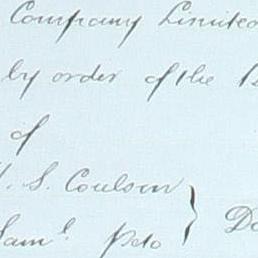 Company Limited
by order of the
of
S. Coulson
Saml Peto